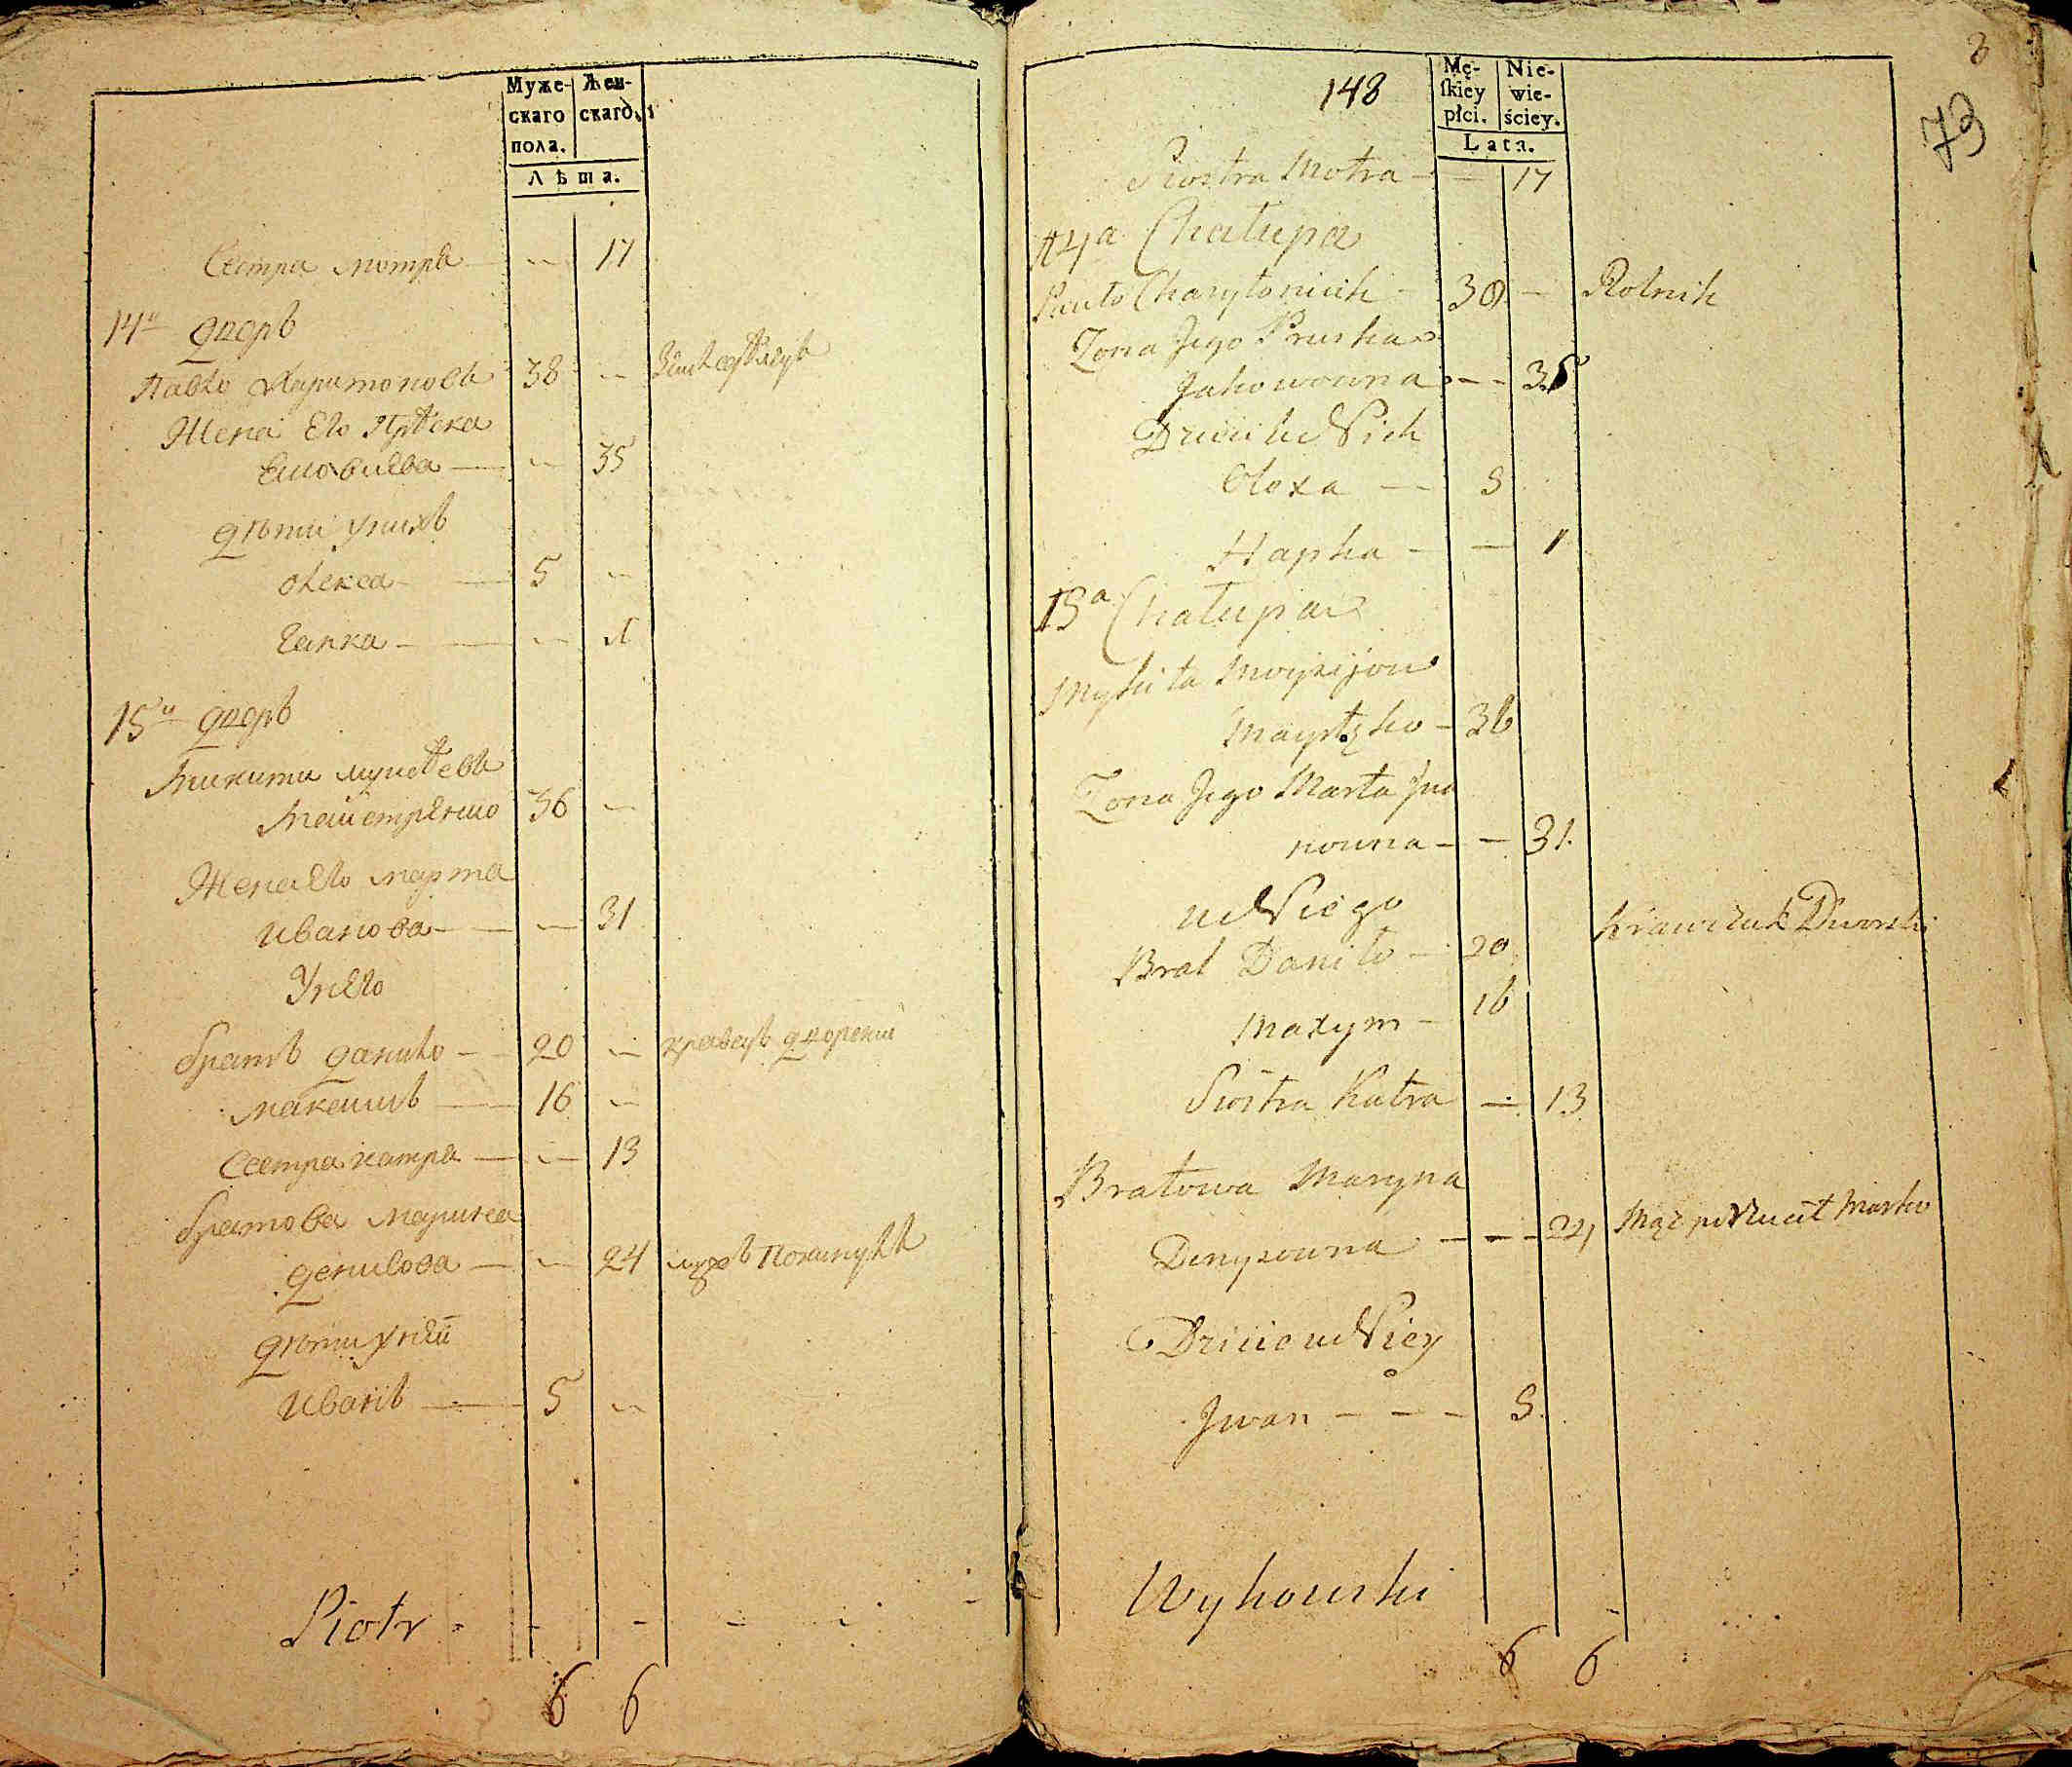 Муже-
скаго
пола.
Жен-
скаго.
Лѣта.
Сестра мотра — — 17
14й дворъ
Павло Харитоновъ 38 —
Жена Его
— 35
дѣти унихъ
олекса — 5 —
Гапка — — 1
15й дворъ
Микита
36 —
Жена Его марта
иванова — — 31
Унего
братъ данило — 20 — кравецъ дворскій
максимъ — 16 —
Сестра катра — — 13
братова марина
денисова — — 24 мужъ покинулъ
дѣти унеи
иванъ — 5 —
Piotr
6 6
148
Mę-
skiey
płci.
Nie-
wie-
ściey.
Lata.
3
73
Siostra Motra — — 17
14a Chałupa
Pawło Charytoniuk — 38 — Rolnik
Zona Jego Pruska
Jakowowna — — 35
Dzieci u Nich
Olexa — 5
Hapka — — 1
15a Chałupa
Mykita Moyzijow
36
Zona Jego Marta Jwa
nowna — — 31.
u Niego
Brat Daniło — 20 Krawczuk Dworski
Maxym — 16
Siostra Katra — 13
Bratowa Maryna
Denysowna — — — 24 Mąż porzucił Marko
Dzieci u Niey
Jwan — — — 5.
Wyhowski
6 6